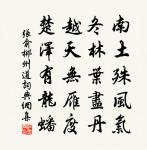 南土殊風氣
冬林盡丹
越天無雁度
楚澤有龍蟠
張俞郴州道詞典網集